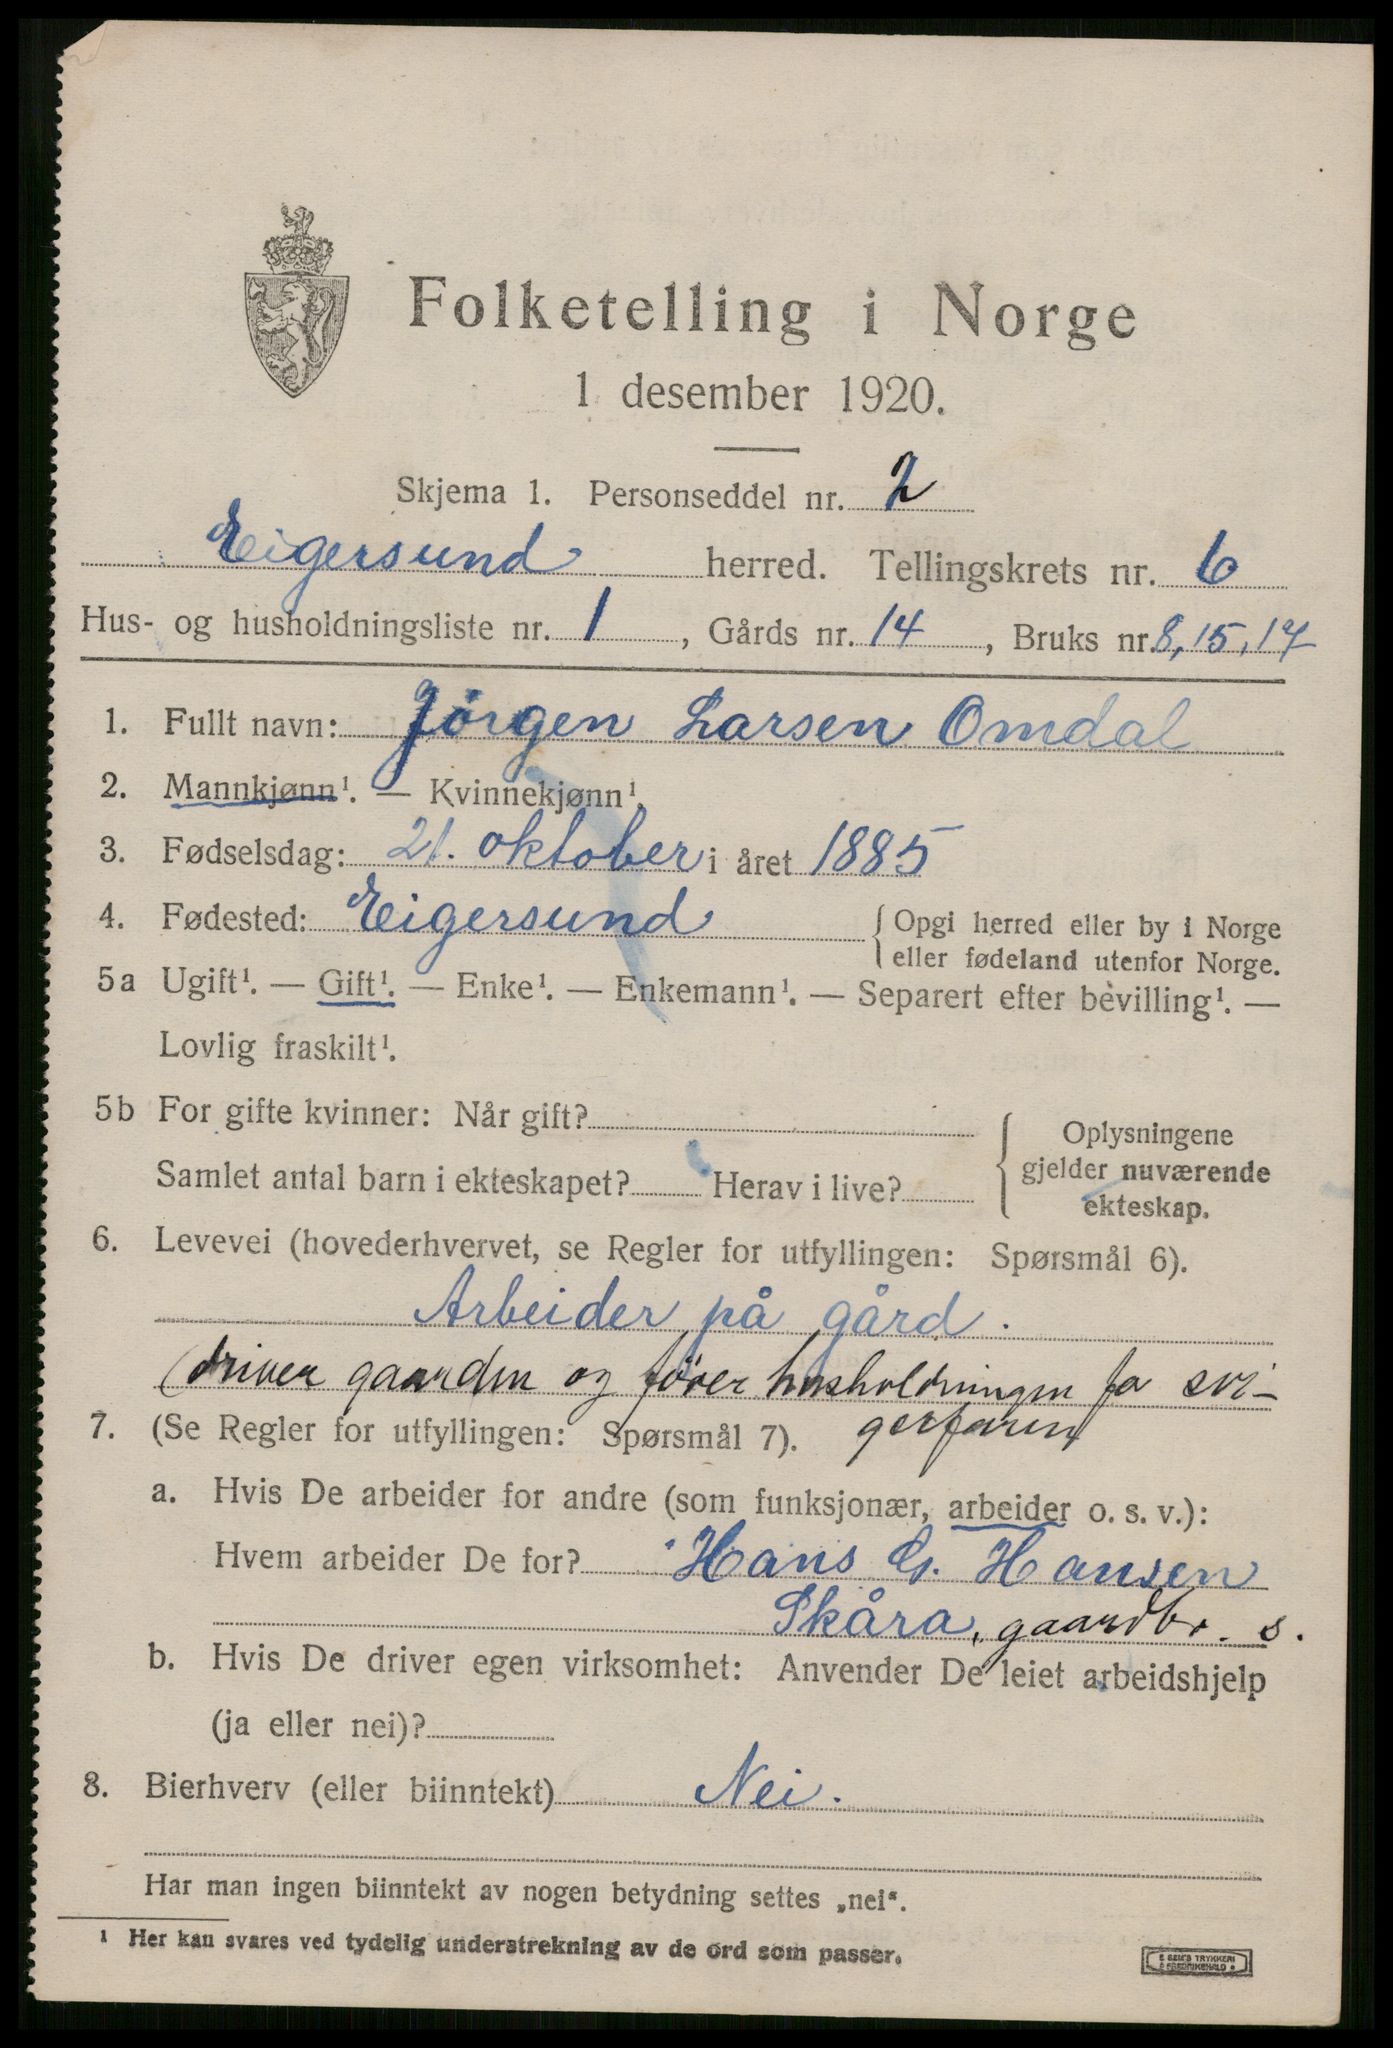 Folketelling i Norge
1 desember 1920.
Skjema 1. Personseddel nr. 2
Eigersund herred. Tellingskrets nr. 6
Hus- og husholdningsliste nr. 1, Gårds nr. 14, Bruks nr. 8, 15, 17
1. Fullt navn: Jörgen Larsen Omdal
2. Mannkjønn¹. — Kvinnekjønn¹.
3. Fødselsdag: 21. oktober i året 1885
4. Fødested: Eigersund {Opgi herred eller by i Norge
eller fødeland utenfor Norge.
5a Ugift¹. — Gift¹. — Enke¹. — Enkemann¹. — Separert efter bevilling¹. —
Lovlig fraskilt¹.
5b For gifte kvinner: Når gift?
Samlet antal barn i ekteskapet? Herav i live?
Oplysningene
gjelder nuværende
ekteskap.
6. Levevei (hovederhvervet, se Regler for utfyllingen: Spørsmål 6).
Arbeider på gård.
(driver gaarden og förer husholdningen for svi-
gerfaren
7. (Se Regler for utfyllingen: Spørsmål 7).
a. Hvis De arbeider for andre (som funksjonær, arbeider o. s. v.):
Hvem arbeider De for? Hans G. Hansen
Skåra, gaardbr. s.
b. Hvis De driver egen virksomhet: Anvender De leiet arbeidshjelp
(ja eller nei)?
8. Bierhverv (eller biinntekt) Nei.
Har man ingen biinntekt av nogen betydning settes „nei“.
¹ Her kan svares ved tydelig understrekning av de ord som passer.
E SEM'S TRYKKERI
FREDRIKSHALD